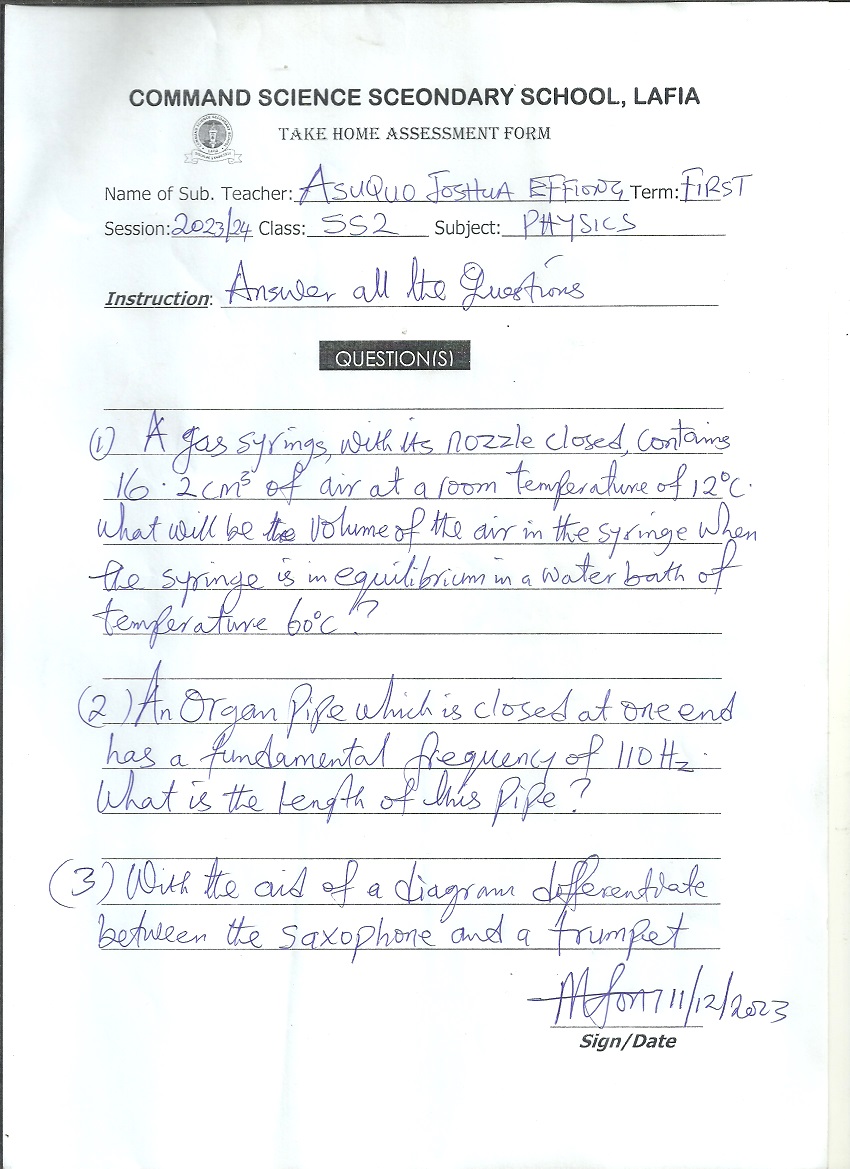 COMMAND SCIENCE SCEONDARY SCHOOL, LAFIA
TAKE HOME ASSESSMENT FORM
Name of Sub. Teacher: ASUQUO JOSHUA EFFIONG Term: FIRST
Session: 2023/24 Class: SS2 Subject: PHYSICS
Instruction: Answer all the Questions
QUESTION(S)
(1) A gas syringe, with its nozzle closed, contains
16.2cm³ of air at a room temperature of 12°C.
What will be the volume of the air in the syringe when
the syringe is in equilibrium in a water bath of
temperature 60°C?
(2) An Organ Pipe which is closed at one end
has a fundamental frequency of 110Hz.
What is the length of this Pipe?
(3) With the aid of a diagram differentiate
between the saxophone and a trumpet
11/12/2023
Sign/Date